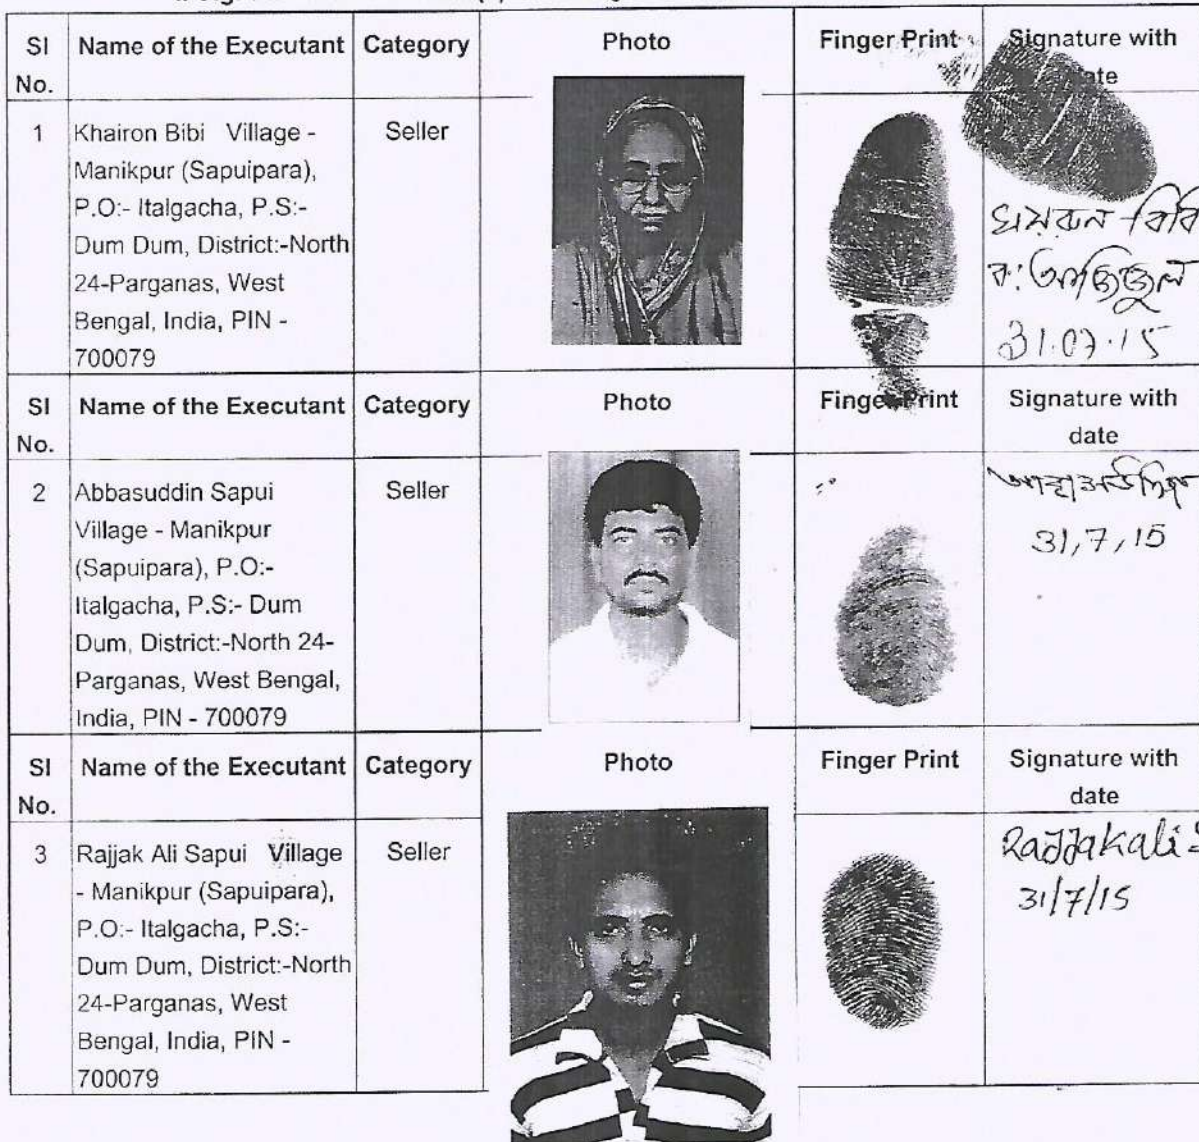 SI No. Name of the Executant Category Photo Finger Print Signature with date
1 Khairon Bibi Village - Seller
Manikpur (Sapuipara),
P.O:- Italgacha, P.S:-
Dum Dum, District:-North
24-Parganas, West
Bengal, India, PIN -
700079
খয়রুন বিবি
31.07.15
SI No. Name of the Executant Category Photo Finger Print Signature with date
2 Abbasuddin Sapui Seller
Village - Manikpur
(Sapuipara), P.O:-
Italgacha, P.S:- Dum
Dum, District:-North 24-
Parganas, West Bengal,
India, PIN - 700079
31,7,15
SI No. Name of the Executant Category Photo Finger Print Signature with date
3 Rajjak Ali Sapui Village Seller
- Manikpur (Sapuipara),
P.O:- Italgacha, P.S:-
Dum Dum, District:-North
24-Parganas, West
Bengal, India, PIN -
700079
Rajjakali
31/7/15